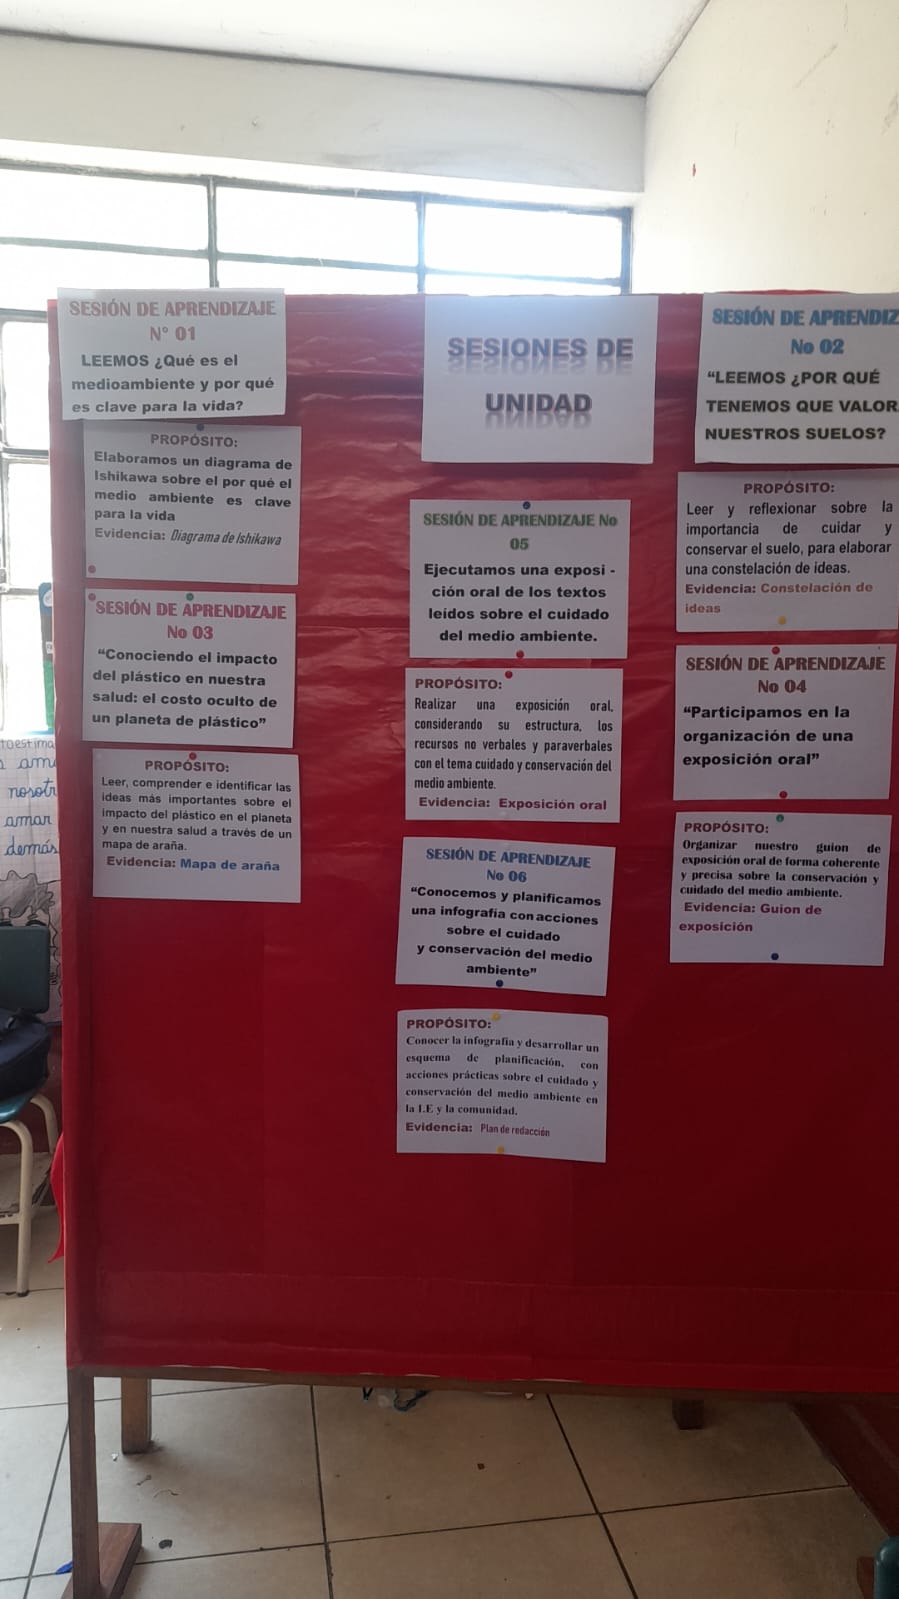 SESIÓN DE APRENDIZAJE
N° 01
LEEMOS ¿Qué es el
medioambiente y por qué
es clave para la vida?
PROPÓSITO:
Elaboramos un diagrama de
Ishikawa sobre el por qué el
medio ambiente es clave
para la vida
Evidencia: Diagrama de Ishikawa
SESIÓN DE APRENDIZAJE
No 03
“Conociendo el impacto
del plástico en nuestra
salud: el costo oculto de
un planeta de plástico”
PROPÓSITO:
Leer, comprender e identificar las
ideas más importantes sobre el
impacto del plástico en el planeta
y en nuestra salud a través de un
mapa de araña.
Evidencia: Mapa de araña
SESIONES DE
UNIDAD
SESIÓN DE APRENDIZAJE No
05
Ejecutamos una exposi -
ción oral de los textos
leídos sobre el cuidado
del medio ambiente.
PROPÓSITO:
Realizar una exposición oral,
considerando su estructura, los
recursos no verbales y paraverbales
con el tema cuidado y conservación del
medio ambiente.
Evidencia: Exposición oral
SESIÓN DE APRENDIZAJE
No 06
“Conocemos y planificamos
una infografía con acciones
sobre el cuidado
y conservación del medio
ambiente”
PROPÓSITO:
Conocer la infografía y desarrollar un
esquema de planificación, con
acciones prácticas sobre el cuidado y
conservación del medio ambiente en
la I.E y la comunidad.
Evidencia: Plan de redacción
SESIÓN DE APRENDIZ
No 02
“LEEMOS ¿POR QUÉ
TENEMOS QUE VALOR
NUESTROS SUELOS?
PROPÓSITO:
Leer y reflexionar sobre la
importancia de cuidar y
conservar el suelo, para elaborar
una constelación de ideas.
Evidencia: Constelación de
ideas
SESIÓN DE APRENDIZAJE
No 04
“Participamos en la
organización de una
exposición oral”
PROPÓSITO:
Organizar nuestro guion de
exposición oral de forma coherente
y precisa sobre la conservación y
cuidado del medio ambiente.
Evidencia: Guion de
exposición
toestima
ama
nosotr
amar
demás